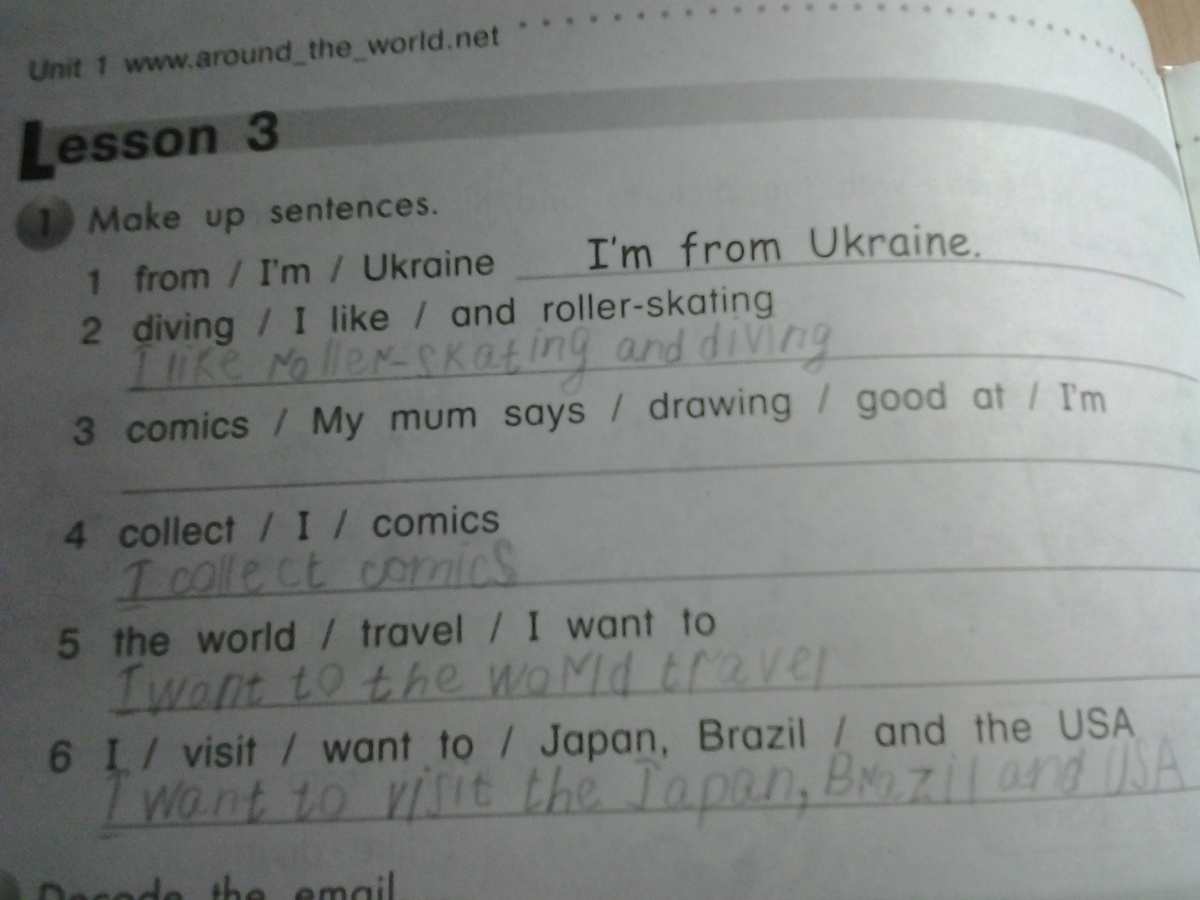 Unit 1 www.around_the_world.net
Lesson 3
1 Make up sentences.
1 from / I'm / Ukraine I'm from Ukraine.
2 diving / I like / and roller-skating
I like roller-skating and diving
3 comics / My mum says / drawing / good at / I'm
4 collect / I / comics
I collect comics
5 the world / travel / I want to
I want to the world travel
6 I / visit / want to / Japan, Brazil / and the USA
I want to visit the Japan, Brazil and USA
Decode the email